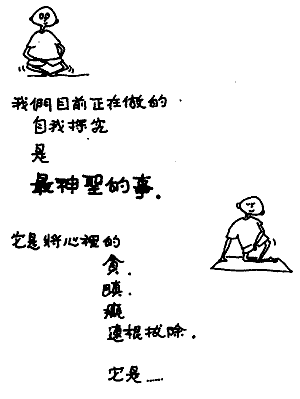 我們目前正在做的
自我探究
是
最神聖的事.
它是將心裡的
貪.
瞋.
癡
連根拔除.
它是……